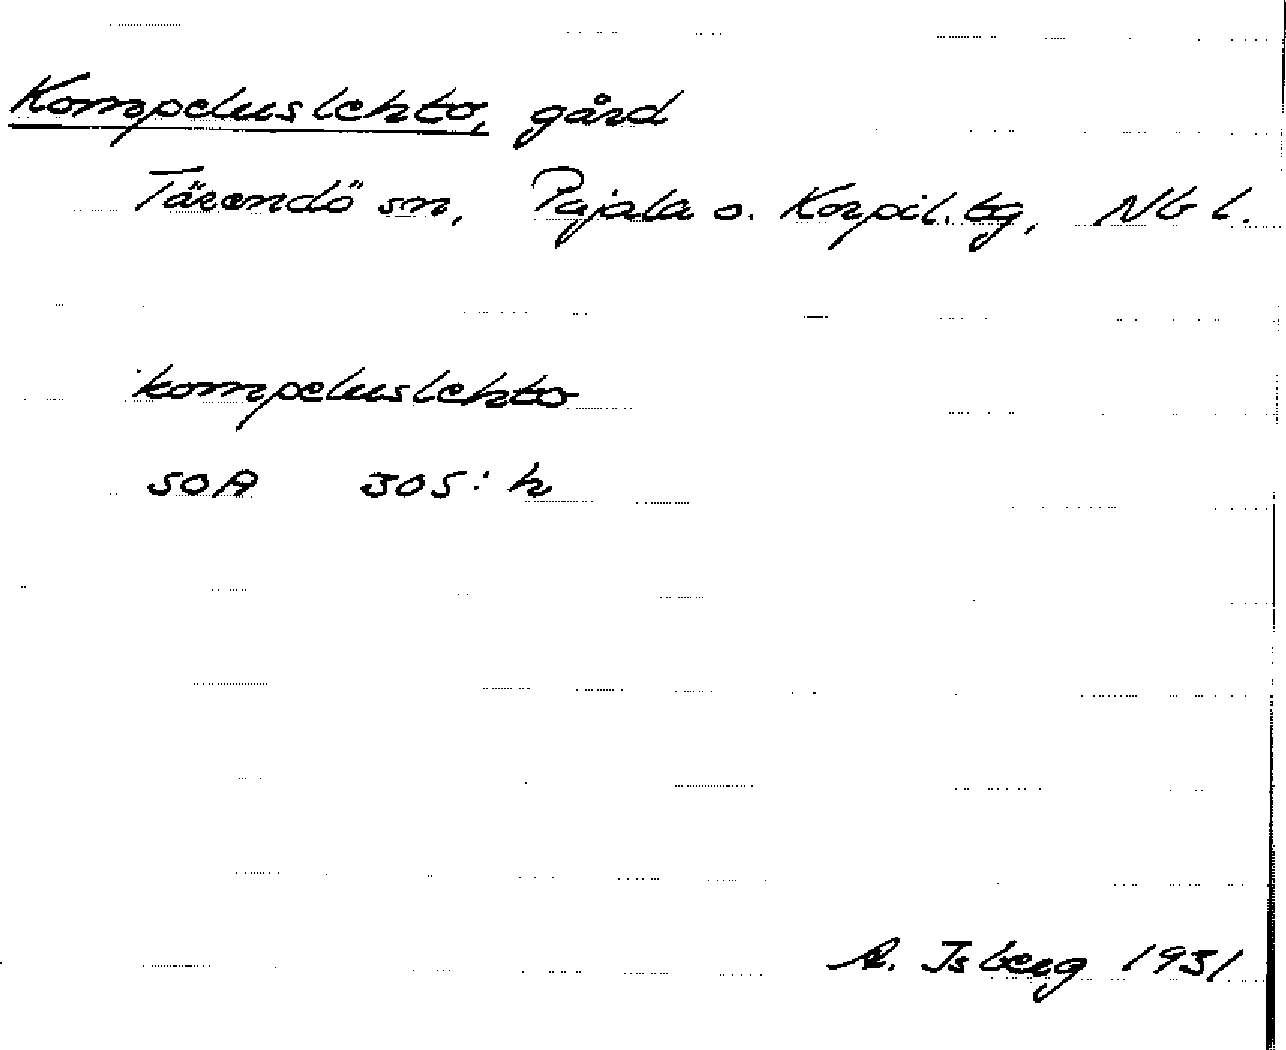 Kompeluslehto, gård
Tärendö sn, Pajala o. Korpil. tg, Nb l.
kompeluslehto
SOA 305: h
A. Isberg 1931